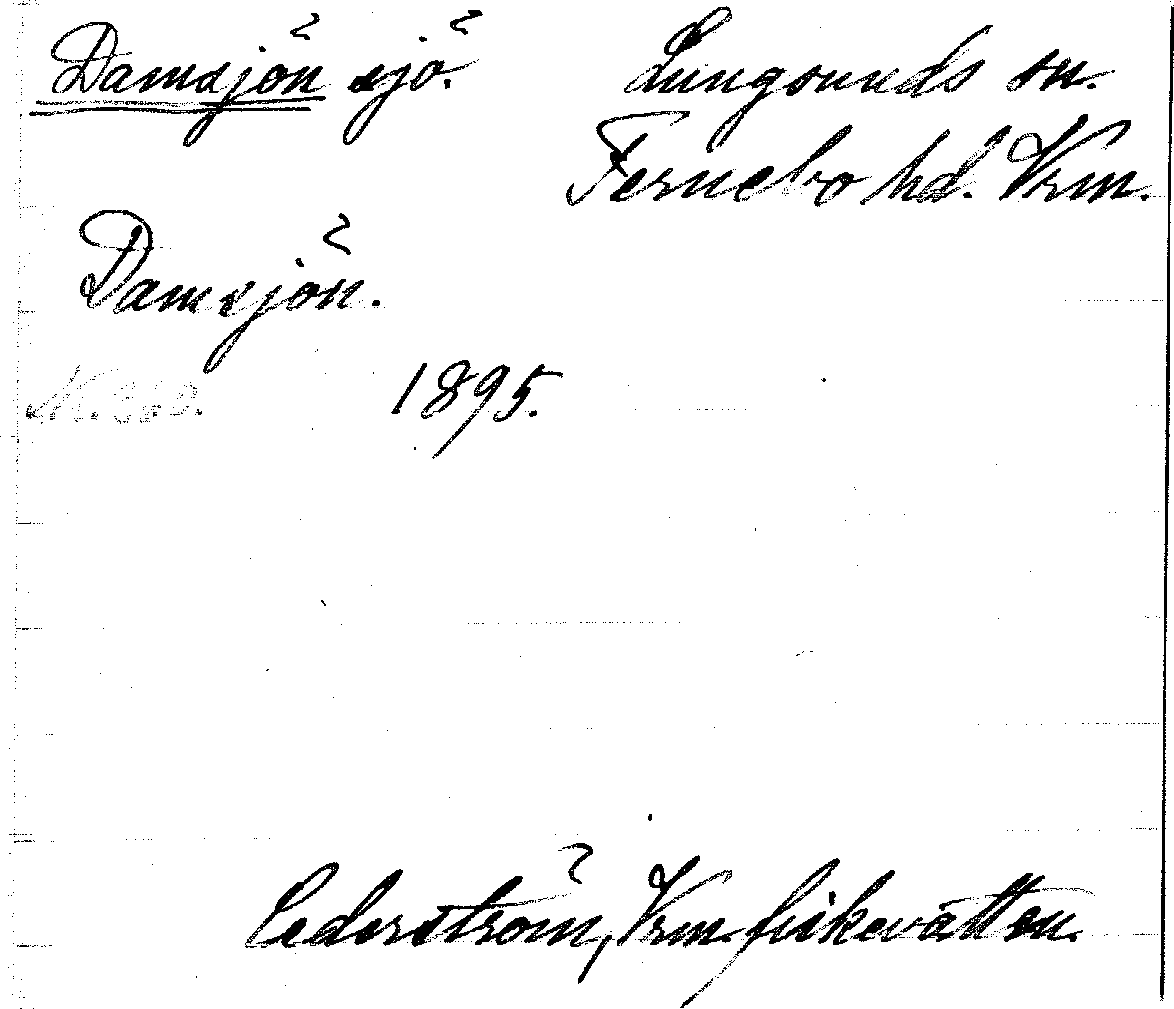 Damsjön sjö. Lungsunds sn.
Fernebo hd. Vrm.
Damsjön.
1895.
Cederström, Vrm. fiskevatten.